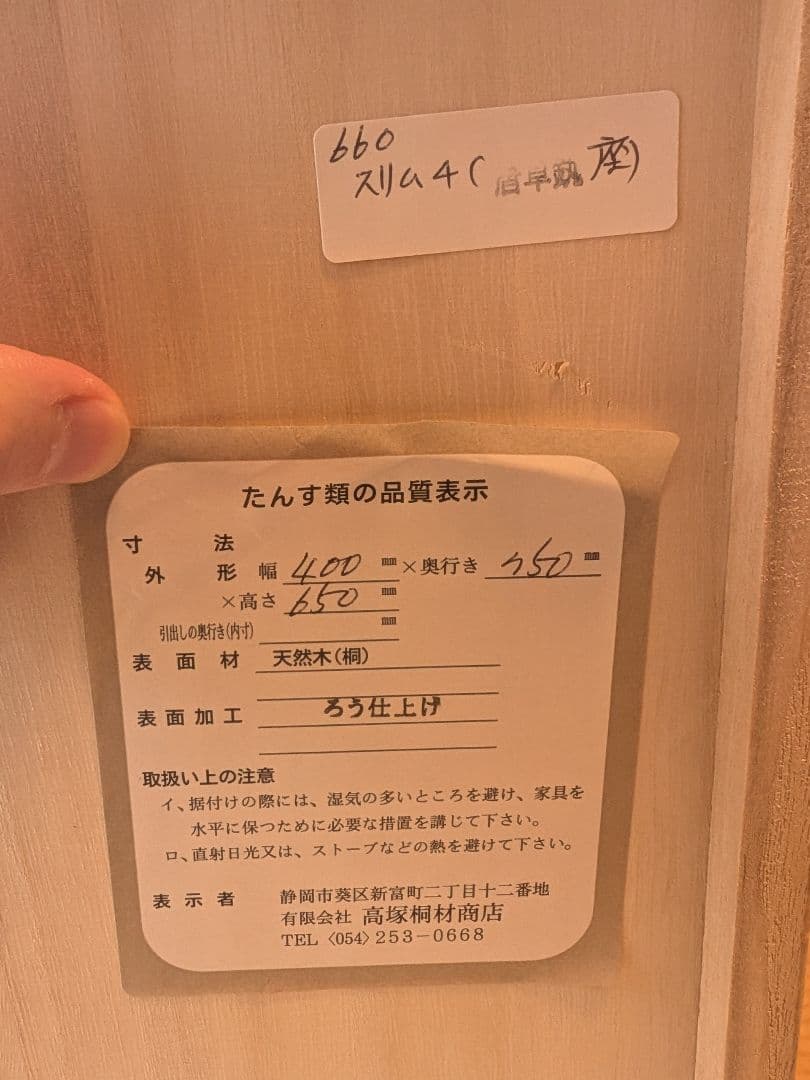 660
スリム4( 座)
たんす類の品質表示
寸法
外形 幅 400 mm ×奥行き 750 mm
×高さ 650 mm
引出しの奥行き(内寸) mm
表面材 天然木(桐)
表面加工 ろう仕上げ
取扱い上の注意
イ、据付けの際には、湿気の多いところを避け、家具を
水平に保つために必要な措置を講じて下さい。
ロ、直射日光又は、ストーブなどの熱を避けて下さい。
表示者 静岡市葵区新富町二丁目十二番地
有限会社 高塚桐材商店
TEL〈054〉253-0668